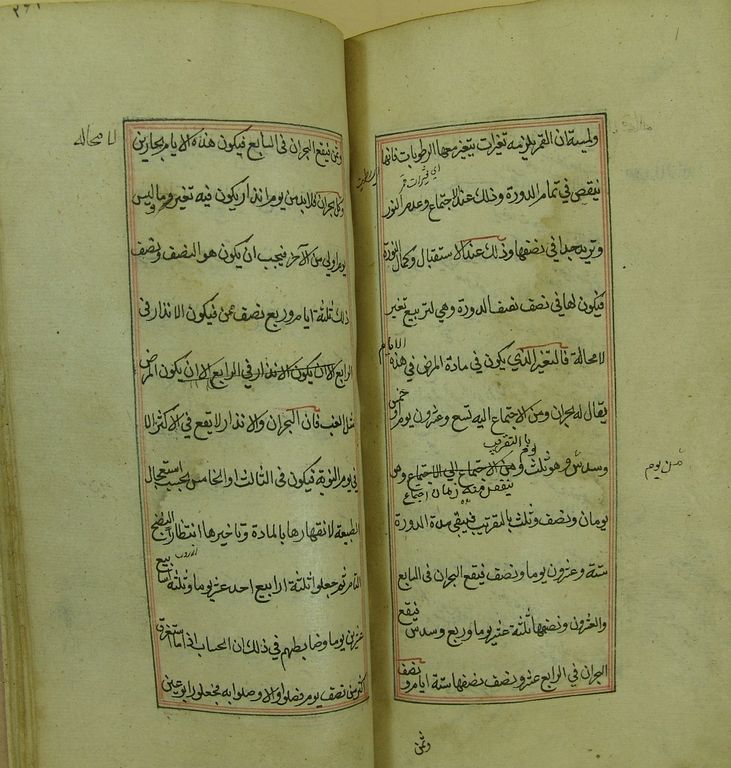 وليسة ان القمر يلزمه تغيرات يتغير معها الرطوبات فانها
ينقص في تمام الدورة وذلك عند الاجتماع وعدم النور
وتزيد جدا في نصفها وذلك عند الاستقبال وكمال النور
فيكون لها في نصف نصف الدورة وهي لتربيع تغير
لا محالة فالتغير الذي يكون في مادة المرض في هذه الايام
يقال له بحران ومن الاجتماع اليه تسع وعشرون يوما وخمس
وسدس وهو ثلث وهن الاجتماع الى الاجتماع
يومان ونصف وثلث بالتقريب فيبقى مدة الدورة
ستة وعشرون يوما ونصف فيقع البحران في السابع
والعشرون ونصفها ثلثة عشر يوما وربع وسدس فيقع
البحران في الرابع عشر ونصف نصفها ستة ايام ونصف
وثمن
ثمن يوم
٢٦١
وثمن فيقع البحران في السابع فيكون هذه الايام بحارين
وكل بحران فلابد من يوم انذار يكون فيه تغير وما ليس
يوم اولى من الآخر فيجب ان يكون هو النصف ونصف
ذلك ثلثة ايام وربع نصف ثمن فيكون الانذار في
الرابع الا ان يكون الانذار في الرابع الا ان يكون المرض
مثل الغب فان البحران والانذار لا يقع في الاكثر الا
في يوم النوبة فيكون في الثالث والخامس بحسب استعجال
الطبيعة لانقهارها بالمادة وتاخيرها انتظار النضج
التام ثم جعلوا ثلثة ارابيع احد عشر يوما وثلثة اسابيع
عشرين يوما وضابطهم في ذلك ان الحساب اذا استغرق
اكثر من نصف يوم فصلوا والا وصلوا به فجعلوا رابوعين
لا محاله